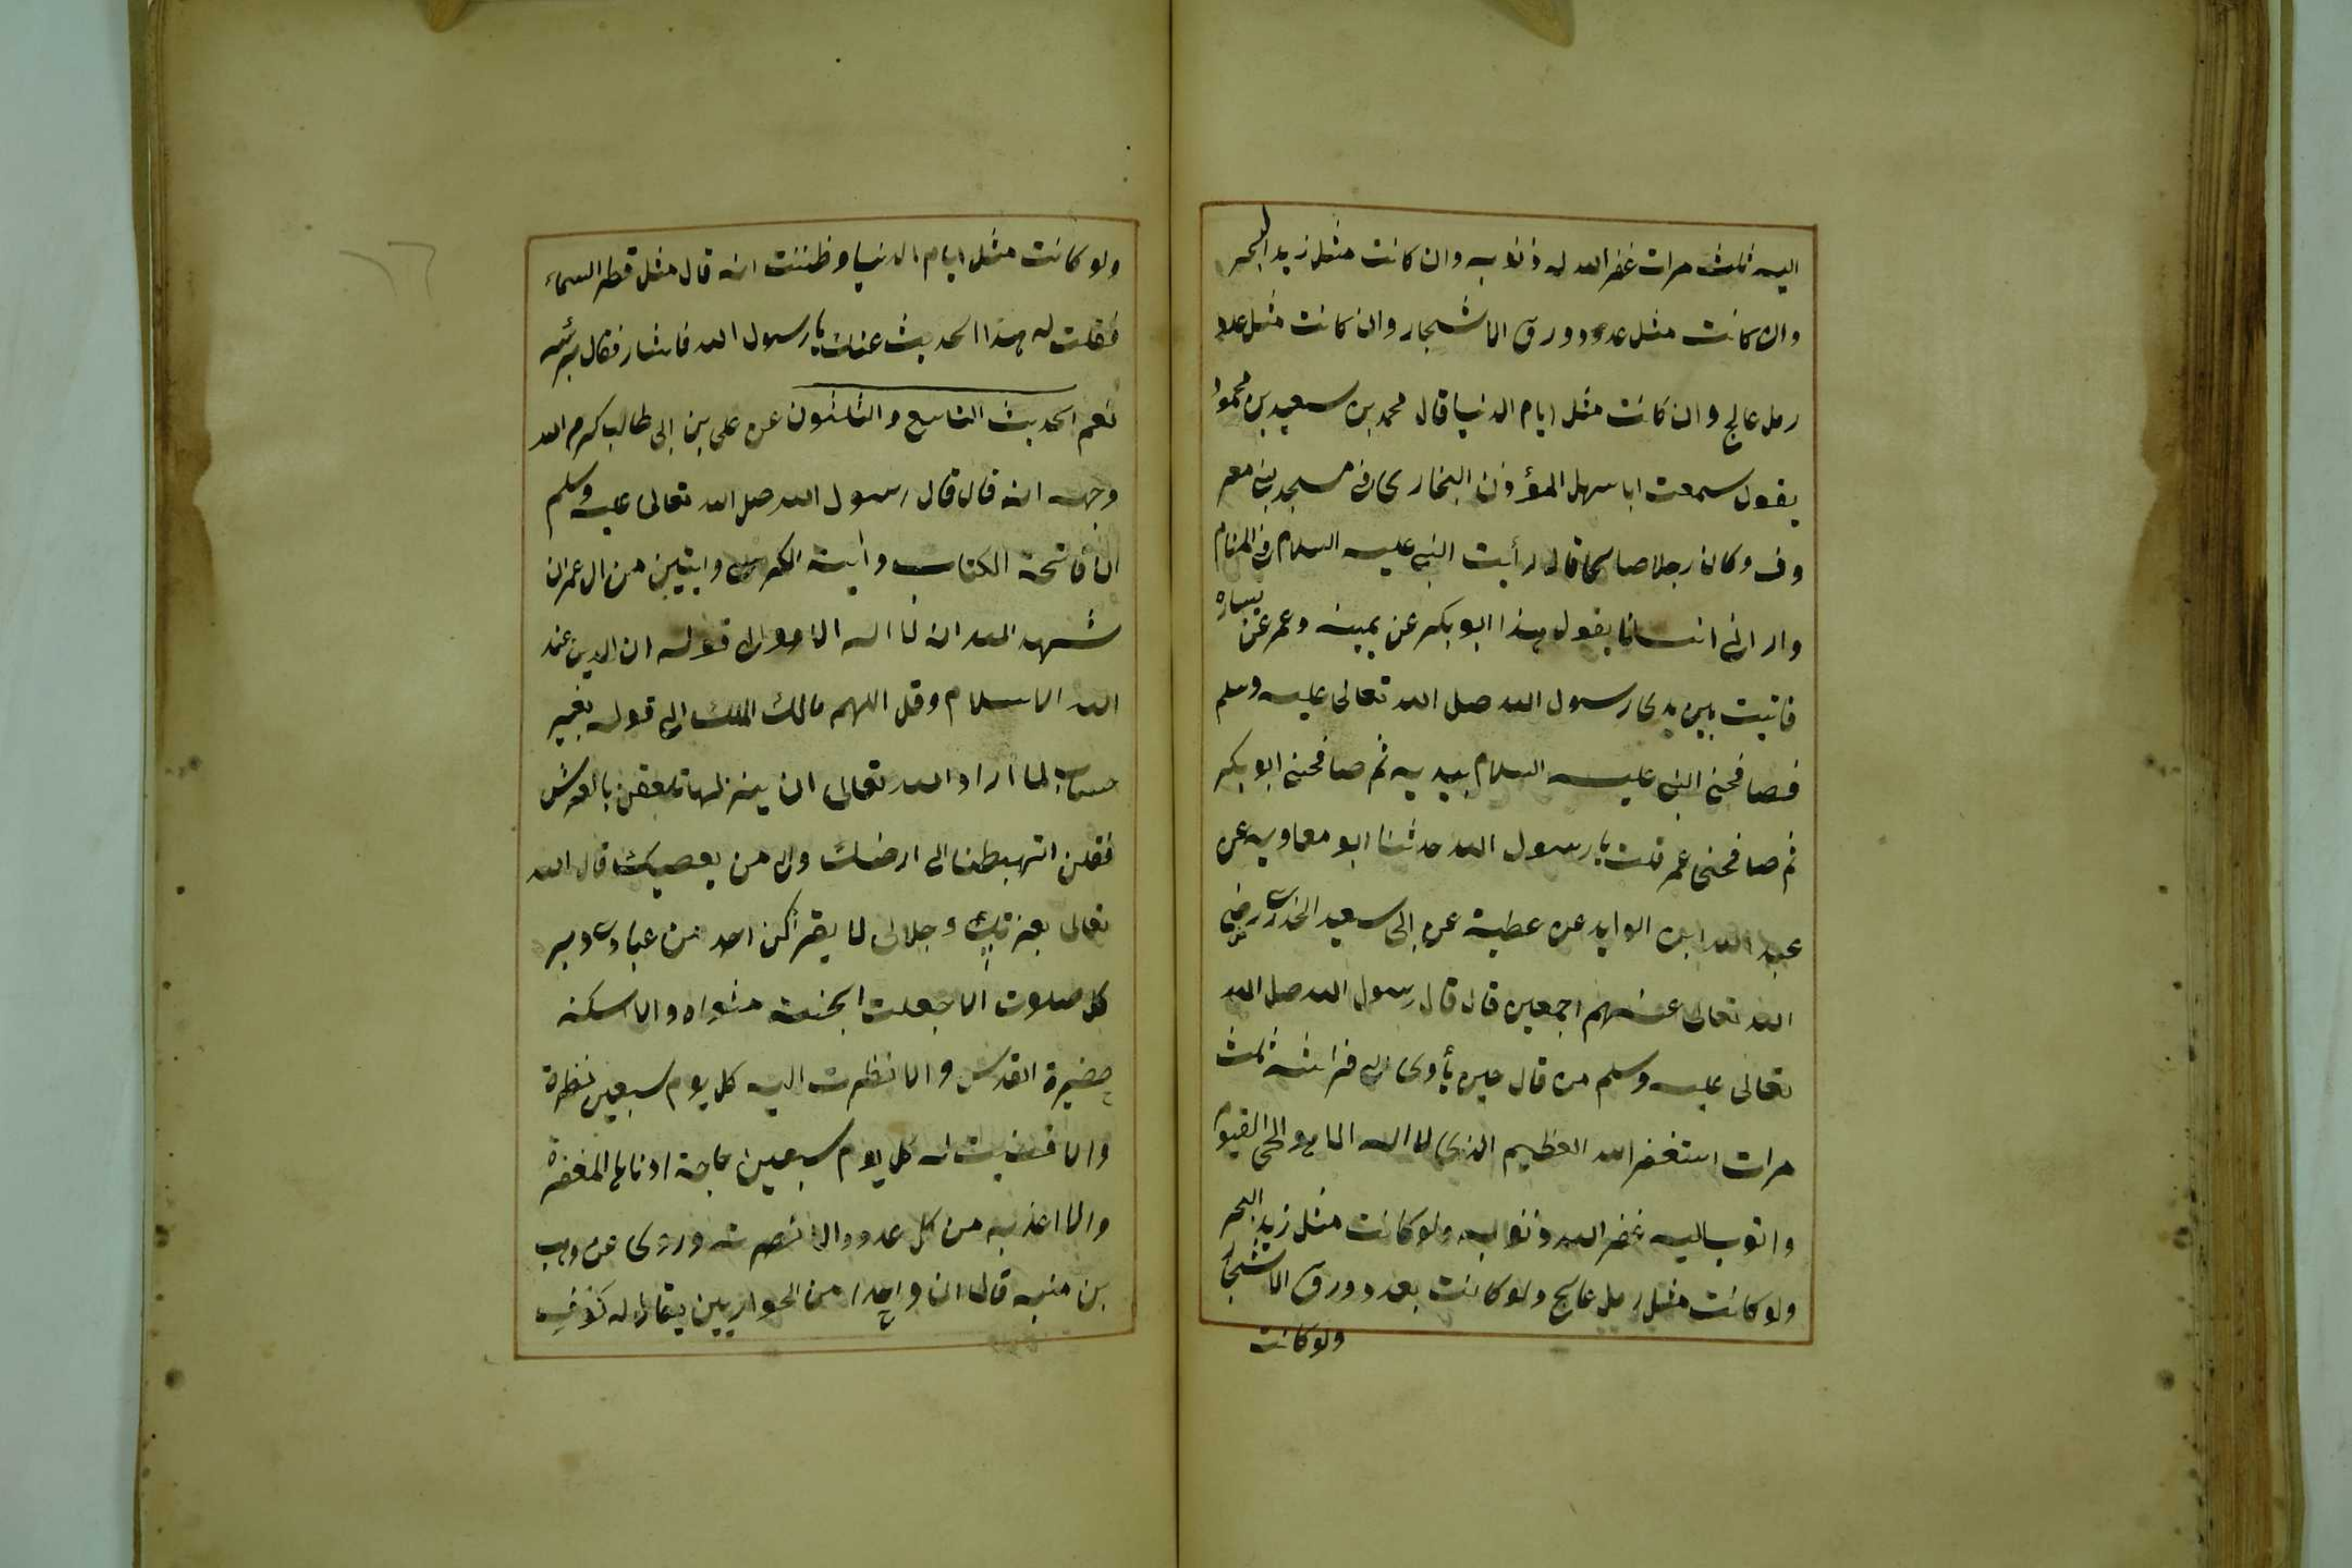 اليه ثلث مرات غفر الله له ذنوبه وان كانت مثل زبد البحر
وان كانت مثل عدد ورق الاشجار وان كانت مثل عدد
رمل عالج وان كانت مثل ايام الدنيا قال محمد بن سعيد بن محمود
يقول سمعت ابا سهل المؤذن البخارى فى مسجد بنى معر
وف وكان رجلا صالحا قال رأيت النبى عليه السلام فى المنام
وارانى انسانا يقول هذا ابو بكر عن يمينه وعمر عن يساره
فاتيت بين يدى رسول الله صلى الله تعالى عليه وسلم
فصافحنى النبى عليه السلام بيديه ثم صافحنى ابو بكر
ثم صافحنى عمر قلت يا رسول الله حدثنا ابو معاويه عن
عبد الله ابن الوليد عن عطية عن ابى سعيد الخدرى رضى
الله تعالى عنهم اجمعين قال قال رسول الله صلى الله
تعالى عليه وسلم من قال حين يأوى الى فراشه ثلث
مرات استغفر الله العظيم الذى لا اله الا هو الحى القيوم
واتوب اليه غفر الله ذنوبه ولو كانت مثل زبد البحر
ولو كانت مثل رمل عالج ولو كانت بعدد ورق الاشجار
ولو كانت
١٦
ولو كانت مثل ايام الدنيا وظننت انه قال مثل قطر السماء
فقلت له هذا الحديث عنك يا رسول الله فاشار فقال برأسه
نعم الحديث التاسع والثلثون عن على بن ابى طالب كرم الله
وجهه انه قال قال رسول الله صلى الله تعالى عليه وسلم
ان فاتحة الكتاب وأية الكرسى وايتين من ال عمران
شهد الله انه لا اله الا هو الى قوله ان الدين عند
الله الاسلام وقل اللهم مالك الملك الى قوله بغير
حساب لما أراد الله تعالى ان ينزلها تعلقن بالعرش
فقلن اتهبطنا الى ارضك والى من يعصيك قال الله
تعالى بعزتى وجلالى لا يقرأكن احد من عبادى دبر
كل صلوت الا جعلت الجنة مثواه والا اسكنه
حضيرة القدس والا نظرت اليه كل يوم سبعين نظرة
والا قضيت له كل يوم سبعين حاجة ادناها المغفرة
والا اعذبه من كل عدو والا نصرته وروى عن وهب
بن منبه قال ان واحدا من الحواريين يقال له